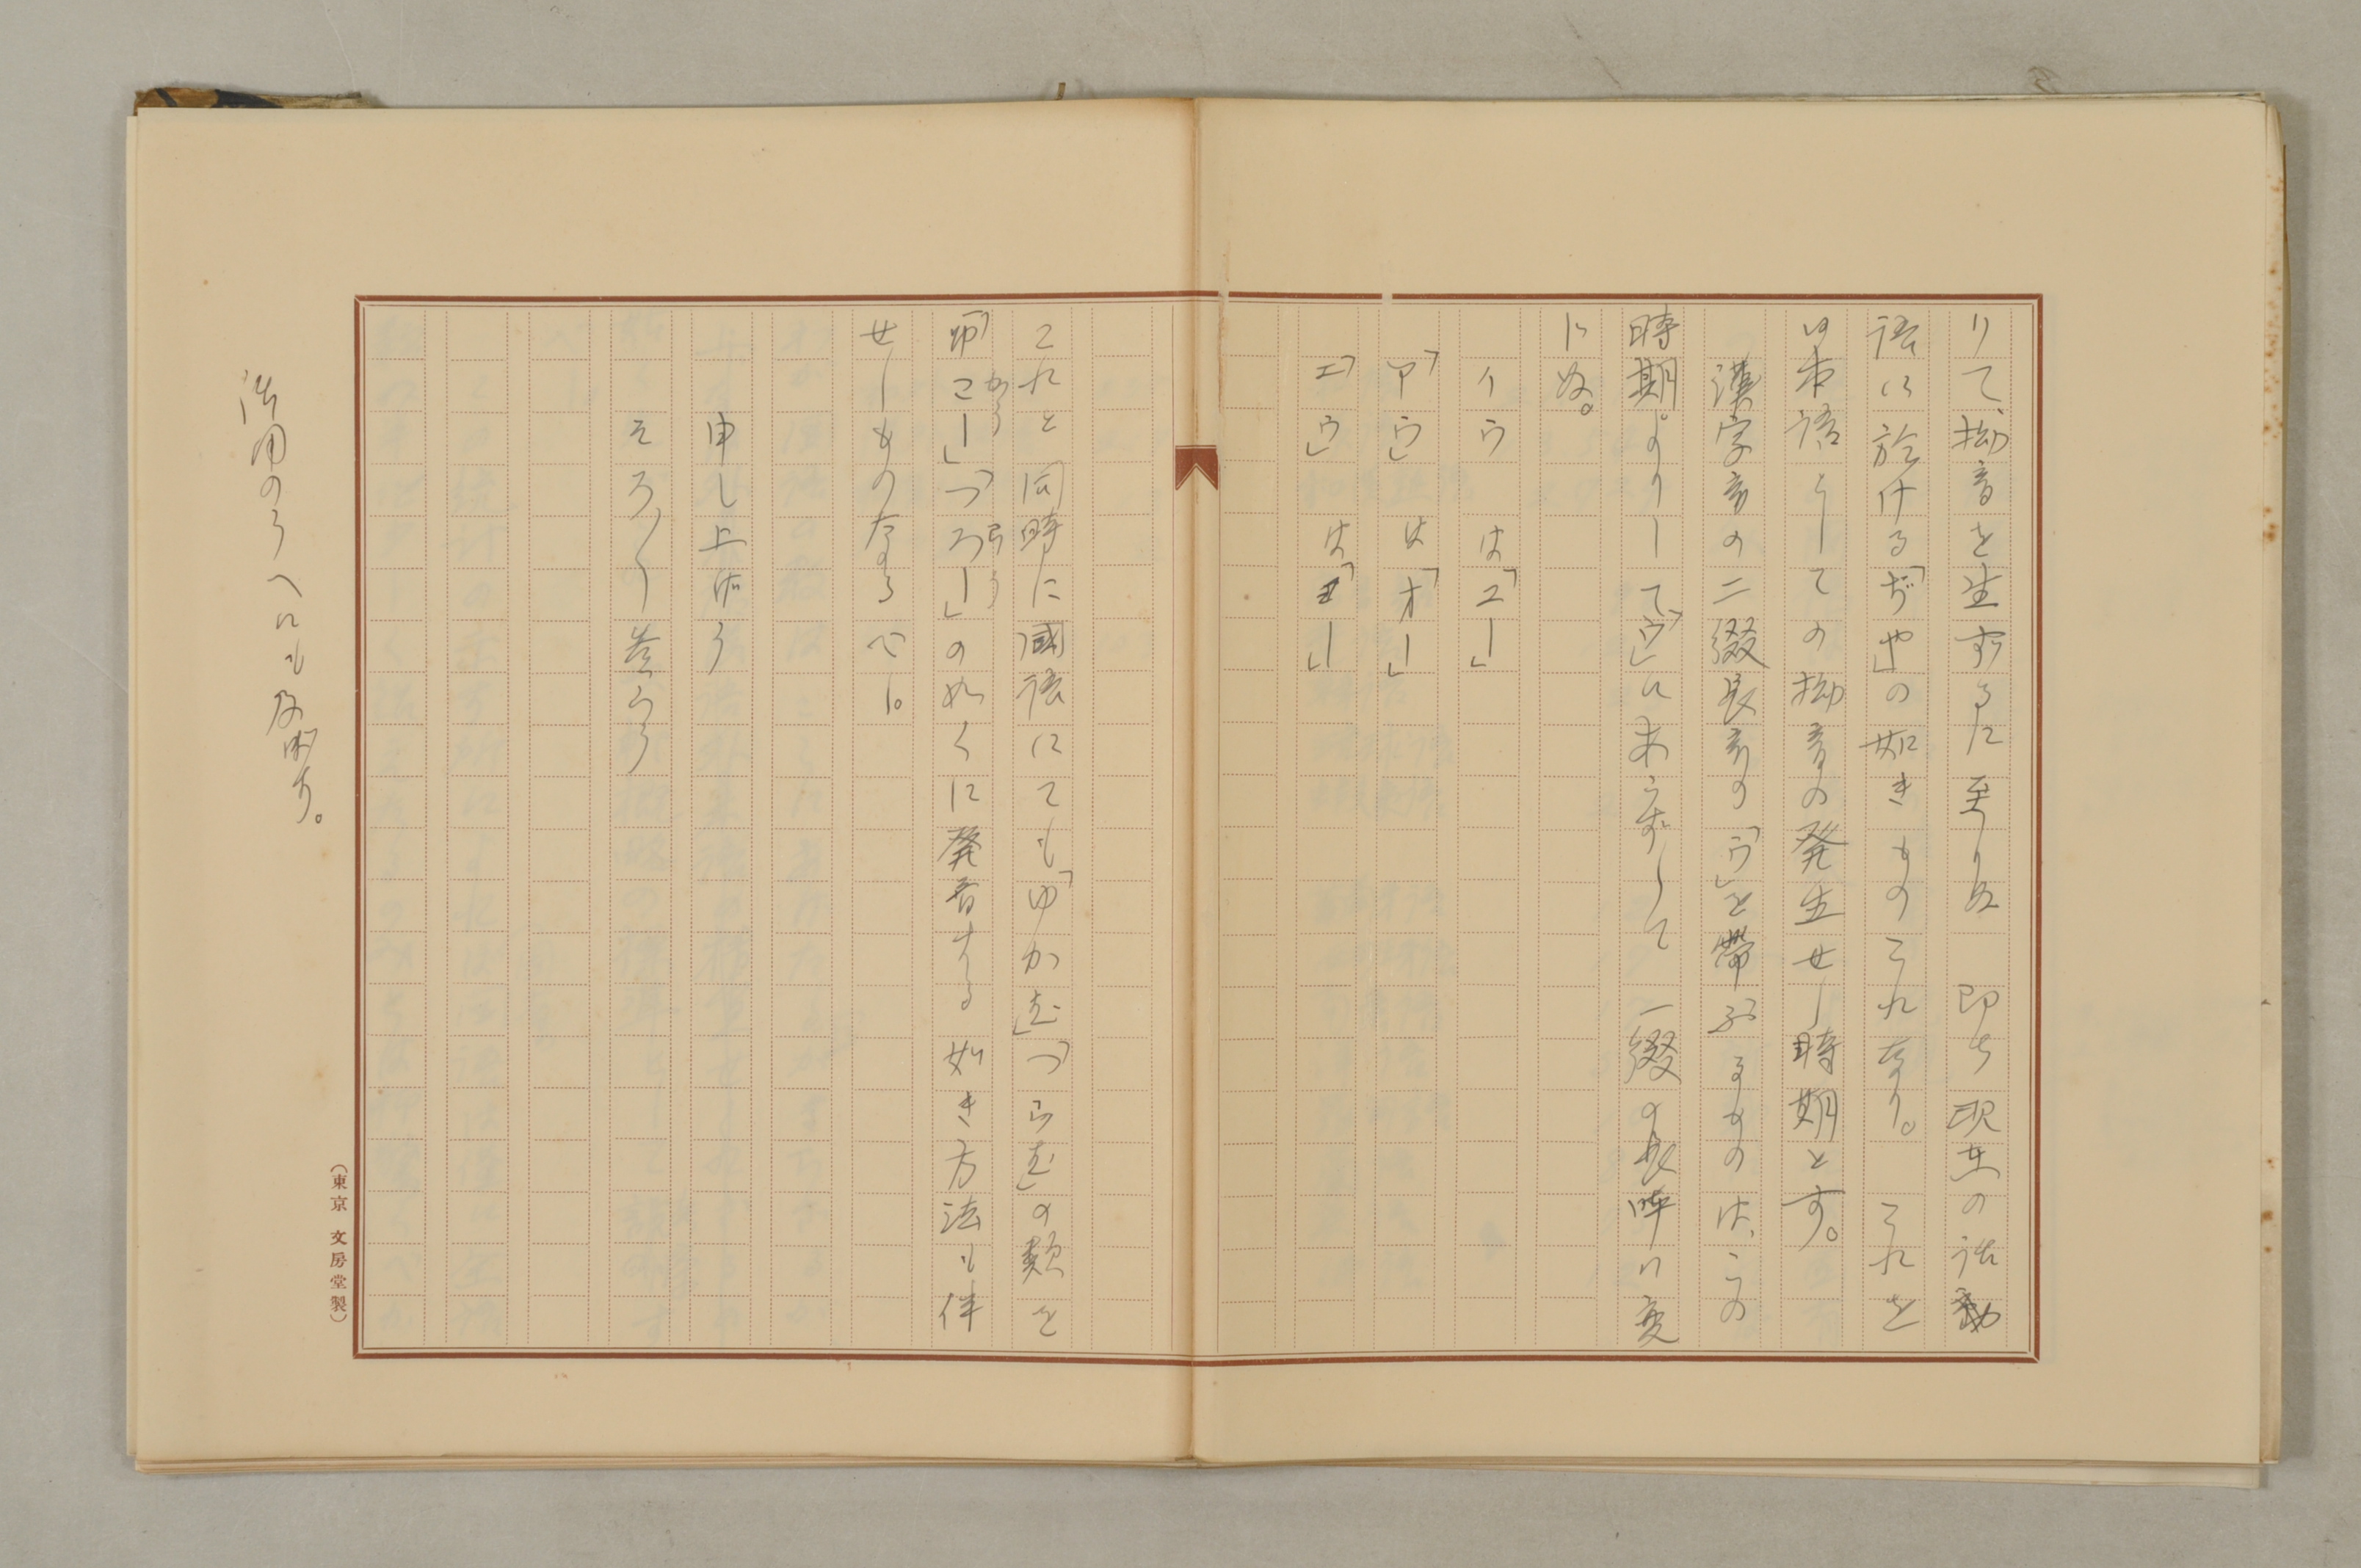 りて、拗音を生ずるに至りぬ　即ち現在の活動
語に於ける「ぢや」の如きものこれなり。　これを
日本語としての拗音の発生せし時期とす。
漢字音の二綴長音の「ウ」を帯ぶるものは、この
時期よりして「ウ」にあらずして　一綴の長呼に変
じぬ。
イウ　は「ユー」
「アウ」　は「オー」
「エウ」　は「ヨー」
これと同時に国語にても「ゆかむ」「つらむ」の類を
「行こー」「つろー」の如くに発音する如き方法も伴
かう
らう
せしものなるべし。
申し上げう
そろ〳〵参らう
活用のうへにも及ぼす。
（東京　文房堂製）